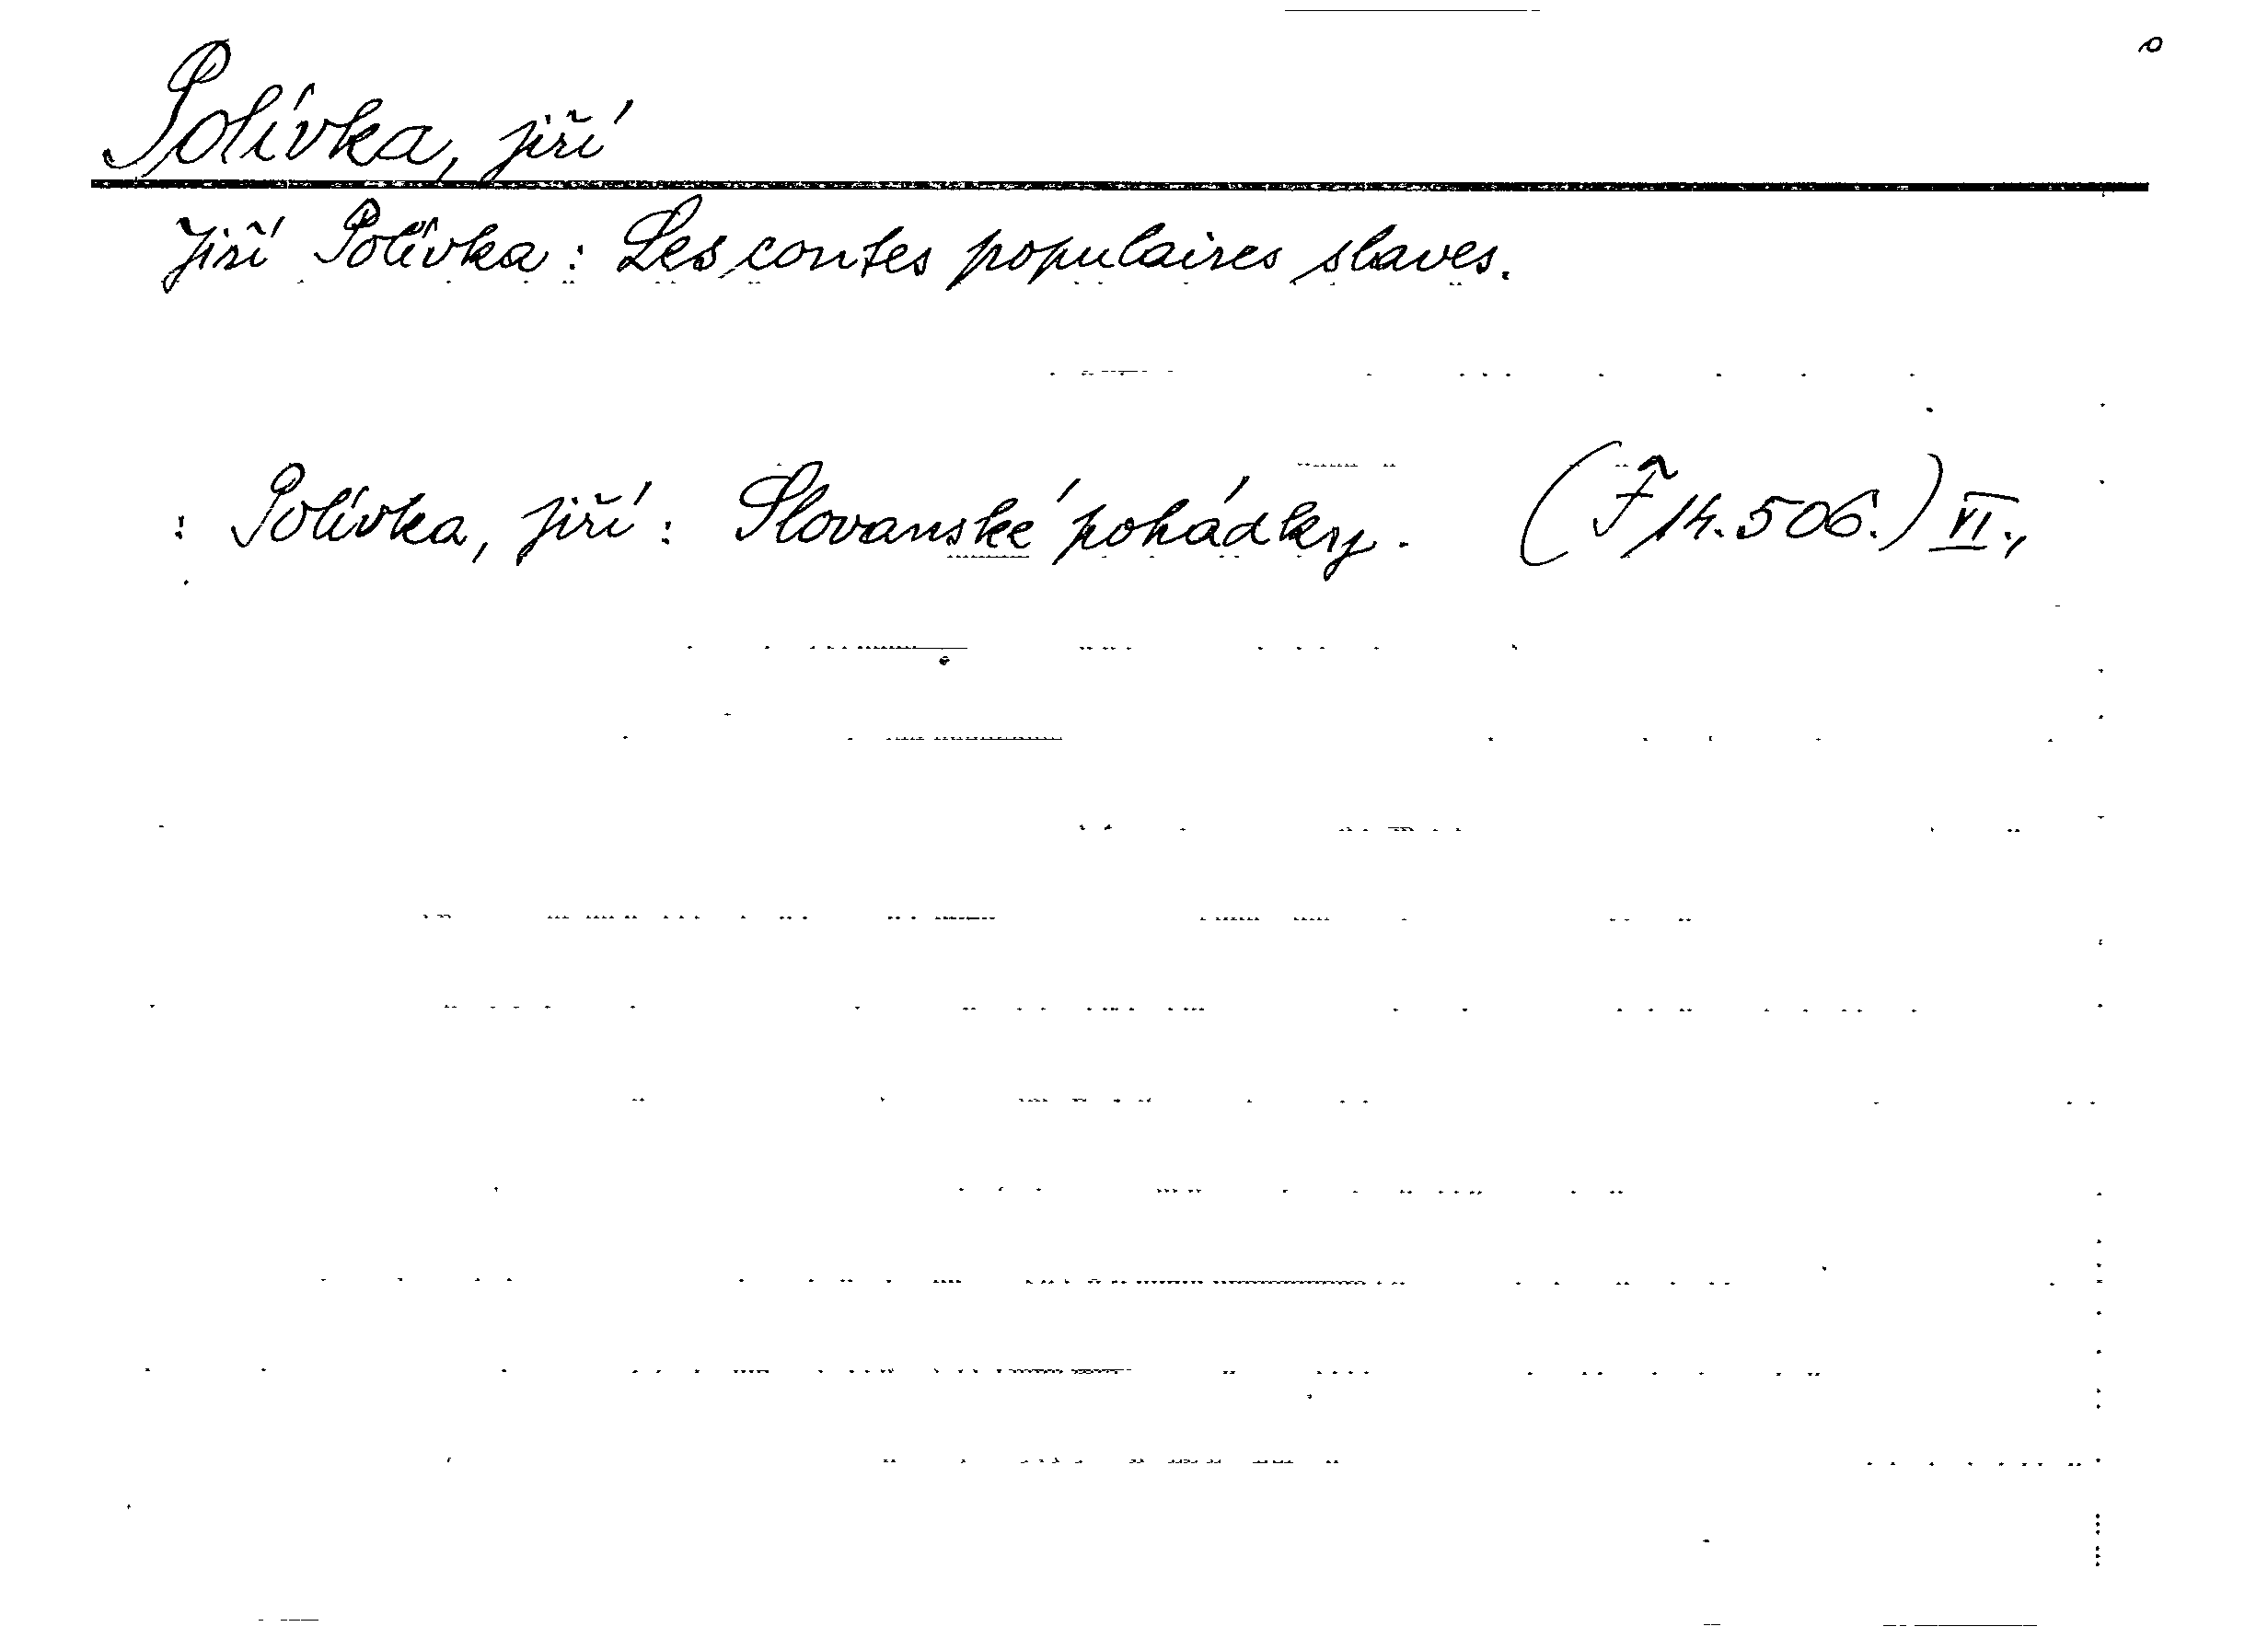 Polívka, Jiří
Jiří Polívka: Les contes populaires slaves.
: Polívka, Jiří: Slovanské pohádky. (F 14.506.) VI.,